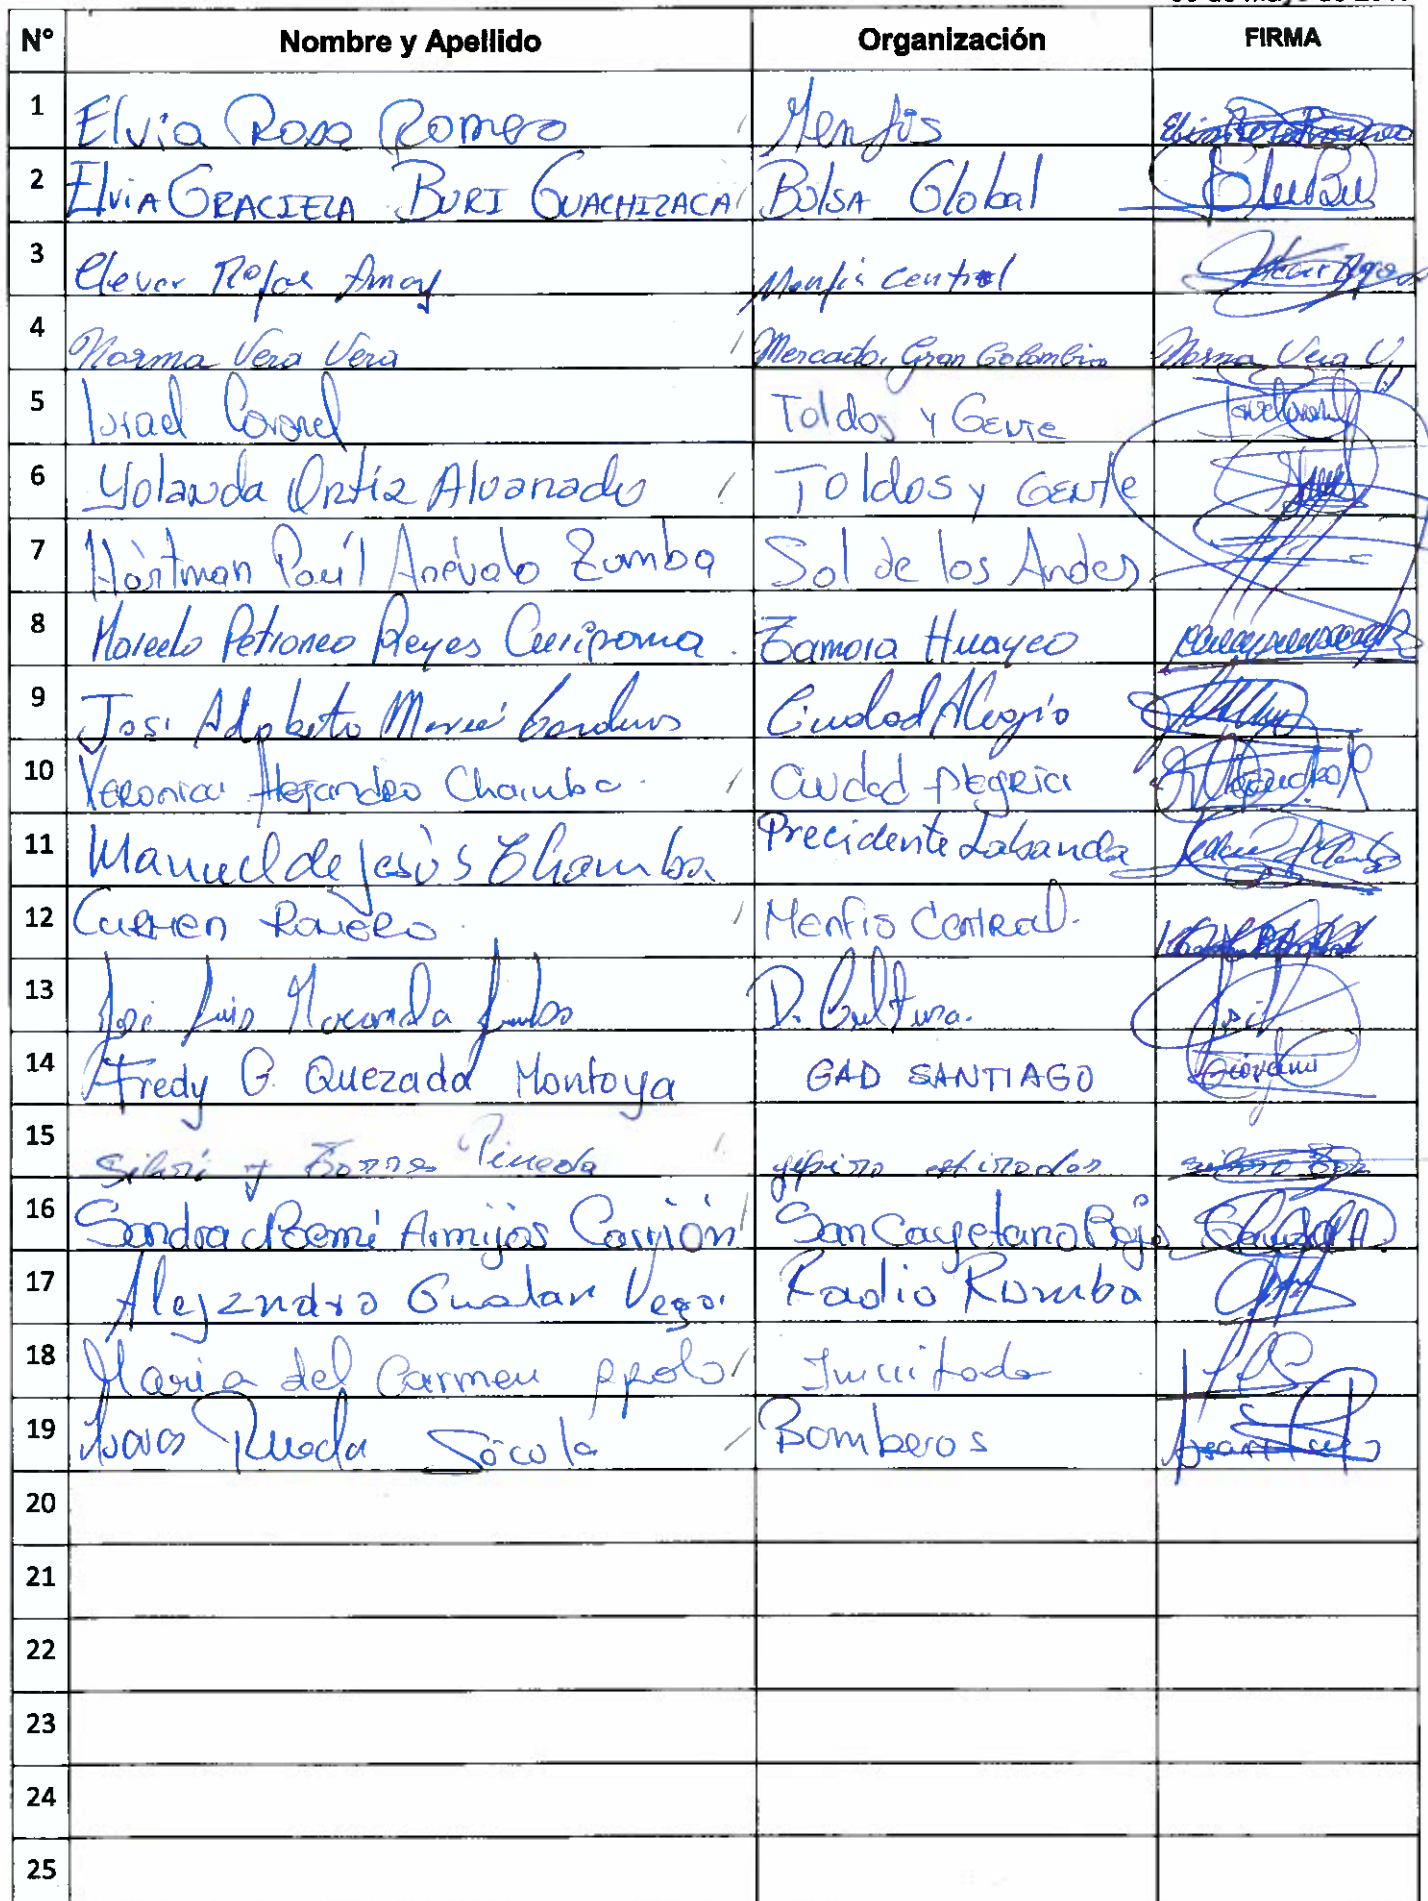 de Mayo de
N° Nombre y Apellido Organización FIRMA
1 Elvia Rosa Romero Menfis
2 ElviA GRACIELA BURI GUACHIZACA BOlSA Global
3 Clever Rojas Amay Menfis Central
4 Norma Vera Vera Mercado Gran Colombia Norma Vera V.
5 Israel Coronel Toldos y Gente
6 Yolanda Ortiz Alvarado Toldos y GENTe
7 Hártman Paúl Arévalo Zumba Sol de los Andes
8 Marcelo Petroneo Reyes Curipoma. Zamora Huayco
9 José Ciudad Alegría
10 Veronica Alejandro Chamba. Ciudad Alegria
11 Manuel de Jesús Chamba Precidente Labanda
12 Carmen Romero. Menfis Central.
13 José Luis D. Cultura.
14 Fredy G. Quezada Montoya GAD SANTIAGO Giovanni
15 Pineda
16 Sandra Noemí Armijos Carrión San Cayetano Bajo
17 Alejandro Gualan Vega. Radio Rumba
18 Maria del Carmen Apolo Invitada
19 Rueda Sócola Bomberos
20
21
22
23
24
25